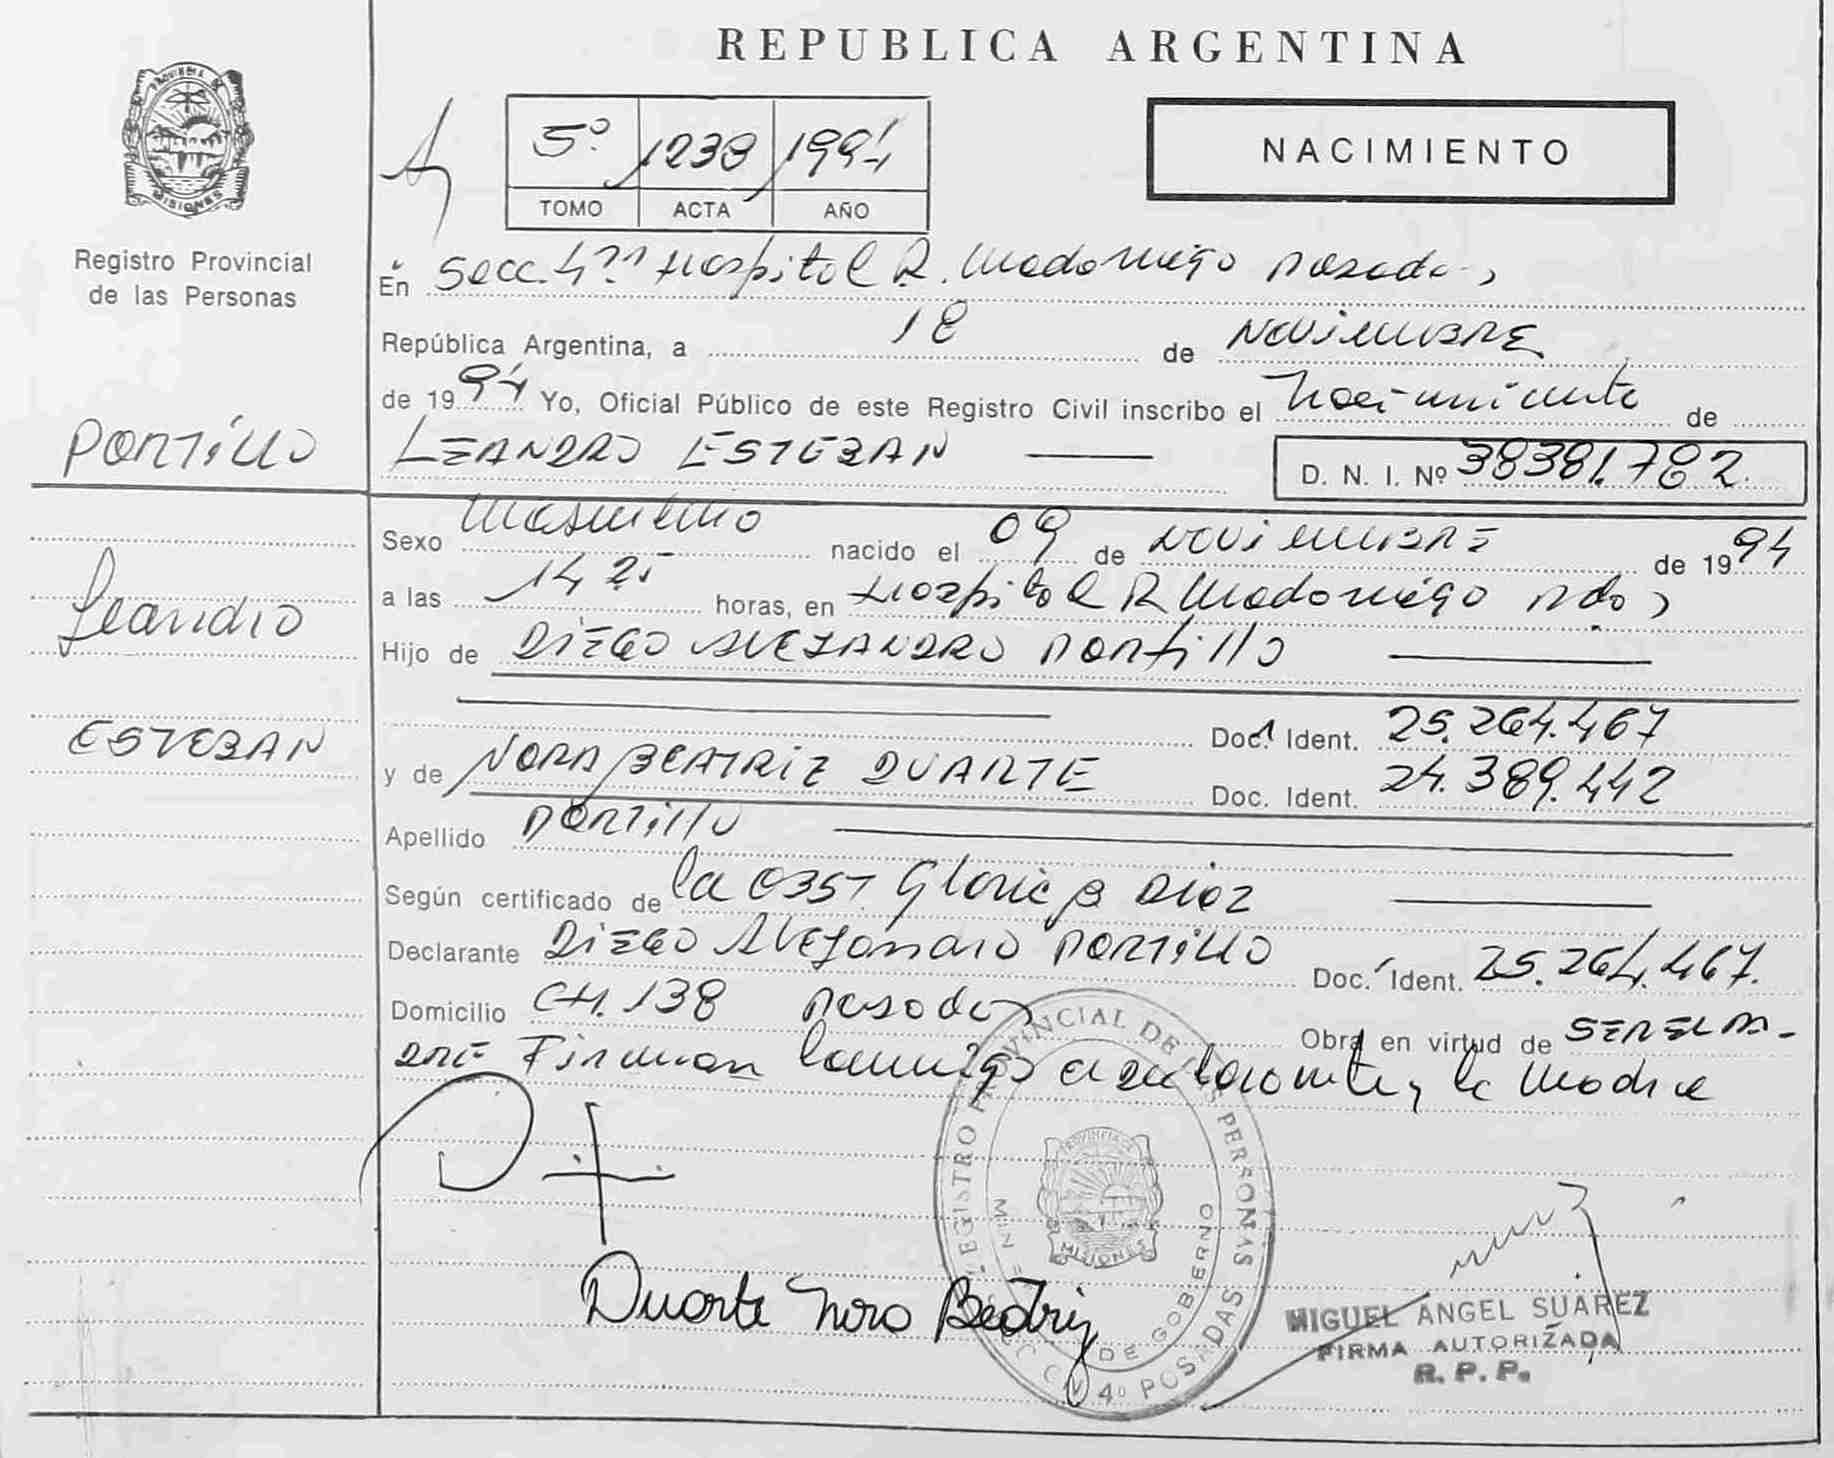 REPUBLICA ARGENTINA
PROVINCIA DE
MISIONES
Registro Provincial
de las Personas
5º 1238 1994
TOMO ACTA AÑO
NACIMIENTO
En Secc. 4ta Hospital R. Madariaga Posadas
República Argentina, a 18 de NOVIEMBRE
de 1994 Yo, Oficial Público de este Registro Civil inscribo el Nacimiento de
PORTILLO
LEANDRO ESTEBAN D. N. I. Nº 38381.782.
Sexo Masculino nacido el 09 de NOVIEMBRE de 1994
a las 14 25 horas, en Hospital R Madariaga Pdas
Leandro
Hijo de DIEGO ALEJANDRO Portillo
Doc. Ident. 25.264.467
ESTEBAN
y de NORA BEATRIZ DUARTE Doc. Ident. 24.389.442
Apellido Portillo
Según certificado de la OBST Gloria B Diaz
Declarante DIEGO Alejandro PORTILLO Doc. Ident. 25.264.467.
Domicilio CH. 138 Posadas Obra en virtud de SER EL PA-
DRE Firman conmigo el declarante y la Madre
Duarte Nora Beatriz
REGISTRO PROVINCIAL DE LAS PERSONAS
DE GOBIERNO
PROVINCIA DE
MISIONES
4º POSADAS
MIGUEL ANGEL SUAREZ
FIRMA AUTORIZADA
R. P. P.